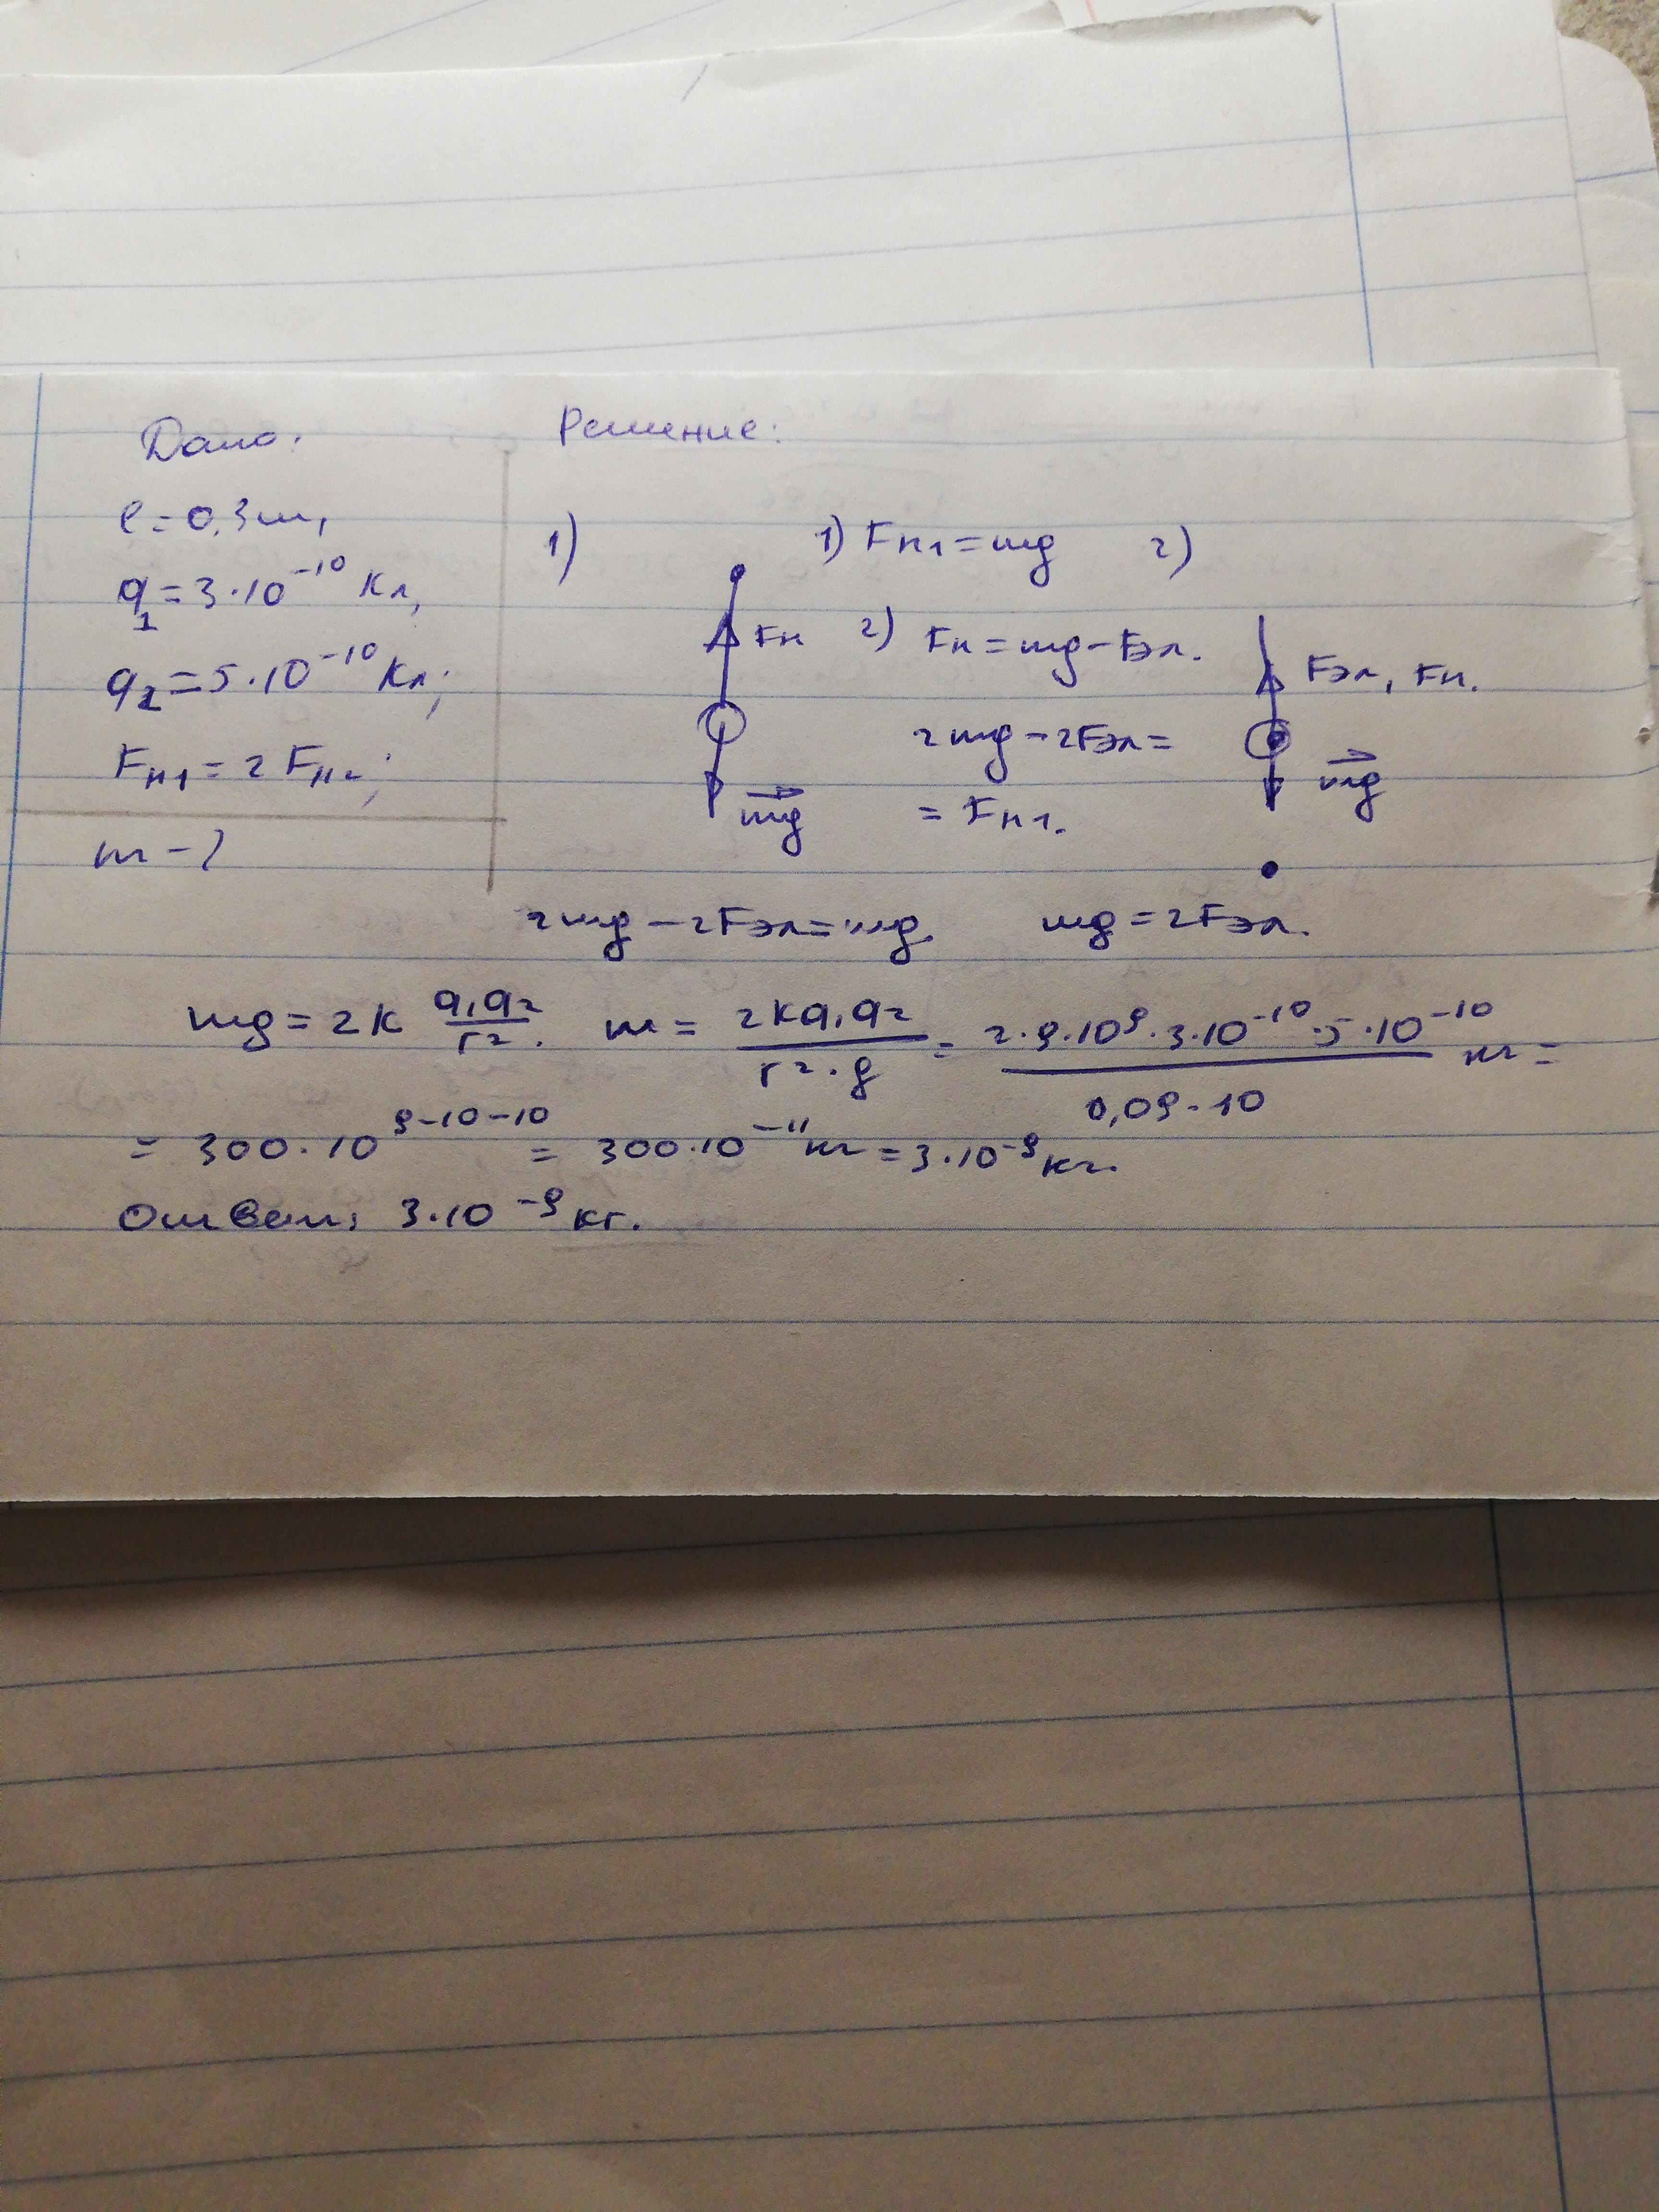 Дано:
Решение:
l = 0,3 м,
q₁ = 3·10⁻¹⁰ Кл,
q₂ = 5·10⁻¹⁰ Кл;
Fн₁ = 2 Fн₂;
m - ?
1)
Fн
mg
1) Fн₁ = mg
2) Fн = mg - Fэл.
2mg - 2Fэл =
= Fн1.
2)
Fэл, Fн.
mg
2mg - 2Fэл = mg. mg = 2Fэл.
mg = 2k q₁q₂/r². m = 2kq₁q₂/r²·g = 2·9·10⁹·3·10⁻¹⁰·5·10⁻¹⁰/0,09·10 кг =
= 300·10⁹⁻¹⁰⁻¹⁰ = 300·10⁻¹¹ кг = 3·10⁻⁹ кг.
Ответ: 3·10⁻⁹ кг.